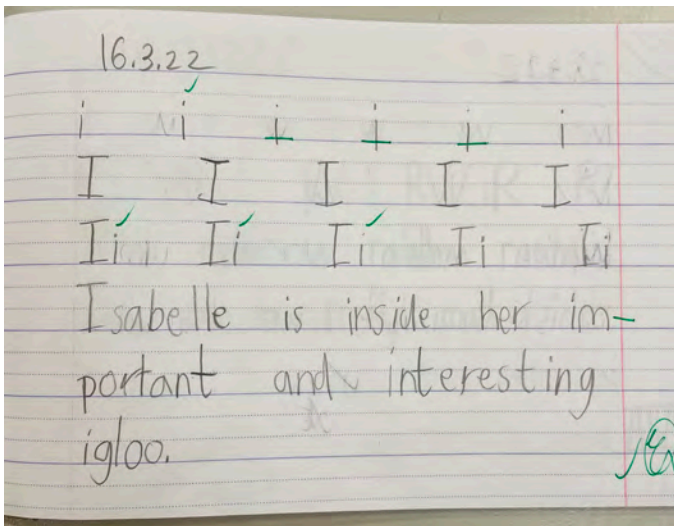 16.3.22
i i i i i i
I I I I I
Ii Ii Ii Ii Ii
Isabelle is inside her im-
portant and interesting
igloo.